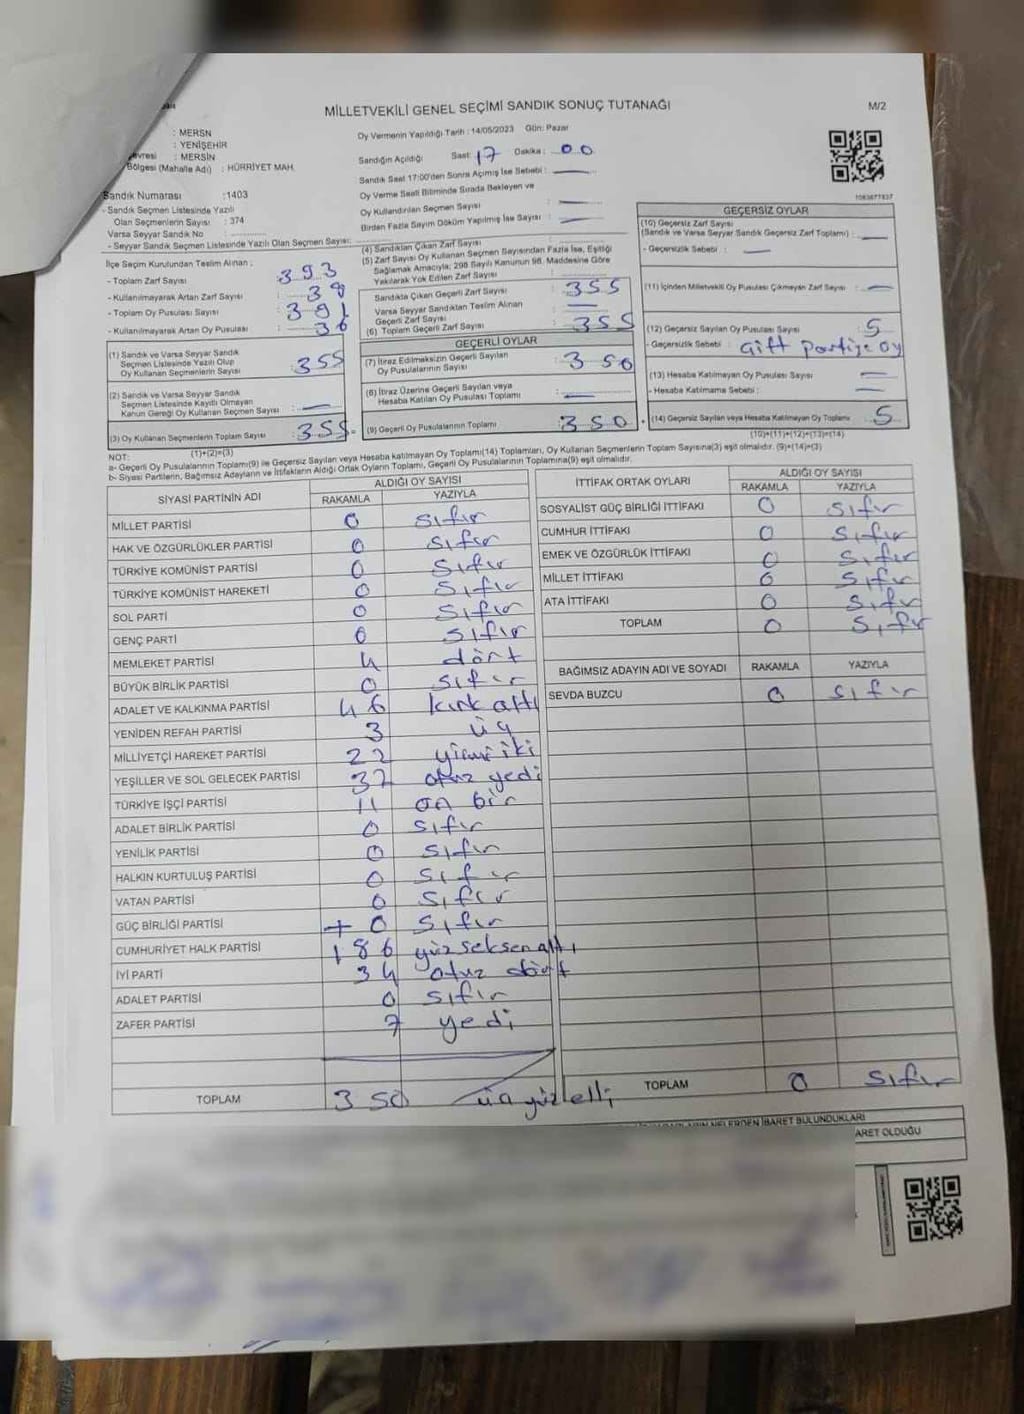 MİLLETVEKİLİ GENEL SEÇİMİ SANDIK SONUÇ TUTANAĞI
M/2
: MERSN
: YENİŞEHİR
evresi : MERSİN
Bölgesi (Mahalle Adı) : HÜRRİYET MAH.
Sandık Numarası :1403
- Sandık Seçmen Listesinde Yazılı
Olan Seçmenlerin Sayısı : 374
Varsa Seyyar Sandık No :
- Seyyar Sandık Seçmen Listesinde Yazılı Olan Seçmen Sayısı:
Oy Vermenin Yapıldığı Tarih : 14/05/2023 Gün: Pazar
Sandığın Açıldığı Saat: 17 Dakika: 00
Sandık Saat 17:00'den Sonra Açımış İse Sebebi :
Oy Verme Saati Bitiminde Sırada Bekleyen ve
Oy Kullandırılan Seçmen Sayısı :
Birden Fazla Sayım Döküm Yapılmış İse Sayısı :
1083877837
İlçe Seçim Kurulundan Teslim Alınan ;
- Toplam Zarf Sayısı : 393
- Kullanılmayarak Artan Zarf Sayısı : 38
- Toplam Oy Pusulası Sayısı : 391
- Kullanılmayarak Artan Oy Pusulası : 36
(1) Sandık ve Varsa Seyyar Sandık
Seçmen Listesinde Yazılı Olup
Oy Kullanan Seçmenlerin Sayısı : 355
(2) Sandık ve Varsa Seyyar Sandık
Seçmen Listesinde Kayıtlı Olmayan
Kanun Gereği Oy Kullanan Seçmen Sayısı :
(3) Oy Kullanan Seçmenlerin Toplam Sayısı : 355
(1)+(2)=(3)
(4) Sandıktan Çıkan Zarf Sayısı :
(5) Zarf Sayısı Oy Kullanan Seçmen Sayısından Fazla İse, Eşitliği
Sağlamak Amacıyla; 298 Sayılı Kanunun 98. Maddesine Göre
Yakılarak Yok Edilen Zarf Sayısı :
Sandıkta Çıkan Geçerli Zarf Sayısı : 355
Varsa Seyyar Sandıktan Teslim Alınan
Geçerli Zarf Sayısı :
(6) Toplam Geçerli Zarf Sayısı : 355
GEÇERLİ OYLAR
(7) İtiraz Edilmeksizin Geçerli Sayılan
Oy Pusulalarının Sayısı : 350
(8) İtiraz Üzerine Geçerli Sayılan veya
Hesaba Katılan Oy Pusulası Toplamı :
(9) Geçerli Oy Pusulalarının Toplamı : 350
GEÇERSİZ OYLAR
(10) Geçersiz Zarf Sayısı
(Sandık ve Varsa Seyyar Sandık Geçersiz Zarf Toplamı) :
- Geçersizlik Sebebi :
(11) İçinden Milletvekili Oy Pusulası Çıkmayan Zarf Sayısı :
(12) Geçersiz Sayılan Oy Pusulası Sayısı : 5
- Geçersizlik Sebebi : Çift Partiye oy
(13) Hesaba Katılmayan Oy Pusulası Sayısı :
- Hesaba Katılmama Sebebi :
(14) Geçersiz Sayılan veya Hesaba Katılmayan Oy Toplamı : 5
(10)+(11)+(12)+(13)=(14)
NOT:
a- Geçerli Oy Pusulalarının Toplamı(9) ile Geçersiz Sayılan veya Hesaba katılmayan Oy Toplamı(14) Toplamları, Oy Kullanan Seçmenlerin Toplam Sayısına(3) eşit olmalıdır. (9)+(14)=(3)
b- Siyasi Partilerin, Bağımsız Adayların ve İttifakların Aldığı Ortak Oyların Toplamı, Geçerli Oy Pusulalarının Toplamına(9) eşit olmalıdır.
SİYASİ PARTİNİN ADI
ALDIĞI OY SAYISI
RAKAMLA YAZIYLA
MİLLET PARTİSİ 0 sıfır
HAK VE ÖZGÜRLÜKLER PARTİSİ 0 sıfır
TÜRKİYE KOMÜNİST PARTİSİ 0 sıfır
TÜRKİYE KOMÜNİST HAREKETİ 0 sıfır
SOL PARTİ 0 sıfır
GENÇ PARTİ 0 sıfır
MEMLEKET PARTİSİ 4 dört
BÜYÜK BİRLİK PARTİSİ 0 sıfır
ADALET VE KALKINMA PARTİSİ 46 kırk altı
YENİDEN REFAH PARTİSİ 3 üç
MİLLİYETÇİ HAREKET PARTİSİ 22 yirmi iki
YEŞİLLER VE SOL GELECEK PARTİSİ 37 otuz yedi
TÜRKİYE İŞÇİ PARTİSİ 11 on bir
ADALET BİRLİK PARTİSİ 0 sıfır
YENİLİK PARTİSİ 0 sıfır
HALKIN KURTULUŞ PARTİSİ 0 sıfır
VATAN PARTİSİ 0 sıfır
GÜÇ BİRLİĞİ PARTİSİ 0 sıfır
CUMHURİYET HALK PARTİSİ 186 yüz seksen altı
İYİ PARTİ 34 otuz dört
ADALET PARTİSİ 0 sıfır
ZAFER PARTİSİ 7 yedi
TOPLAM 350 üç yüz elli
İTTİFAK ORTAK OYLARI
ALDIĞI OY SAYISI
RAKAMLA YAZIYLA
SOSYALİST GÜÇ BİRLİĞİ İTTİFAKI 0 sıfır
CUMHUR İTTİFAKI 0 sıfır
EMEK VE ÖZGÜRLÜK İTTİFAKI 0 sıfır
MİLLET İTTİFAKI 0 sıfır
ATA İTTİFAKI 0 sıfır
TOPLAM 0 sıfır
BAĞIMSIZ ADAYIN ADI VE SOYADI RAKAMLA YAZIYLA
SEVDA BUZCU 0 sıfır
TOPLAM 0 sıfır
NELERDEN İBARET BULUNDUKLARI
ARET OLDUĞU